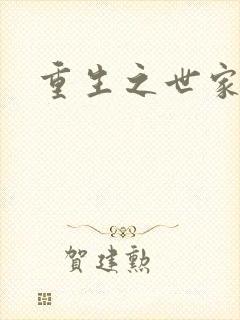 重生之世家
賀建勲